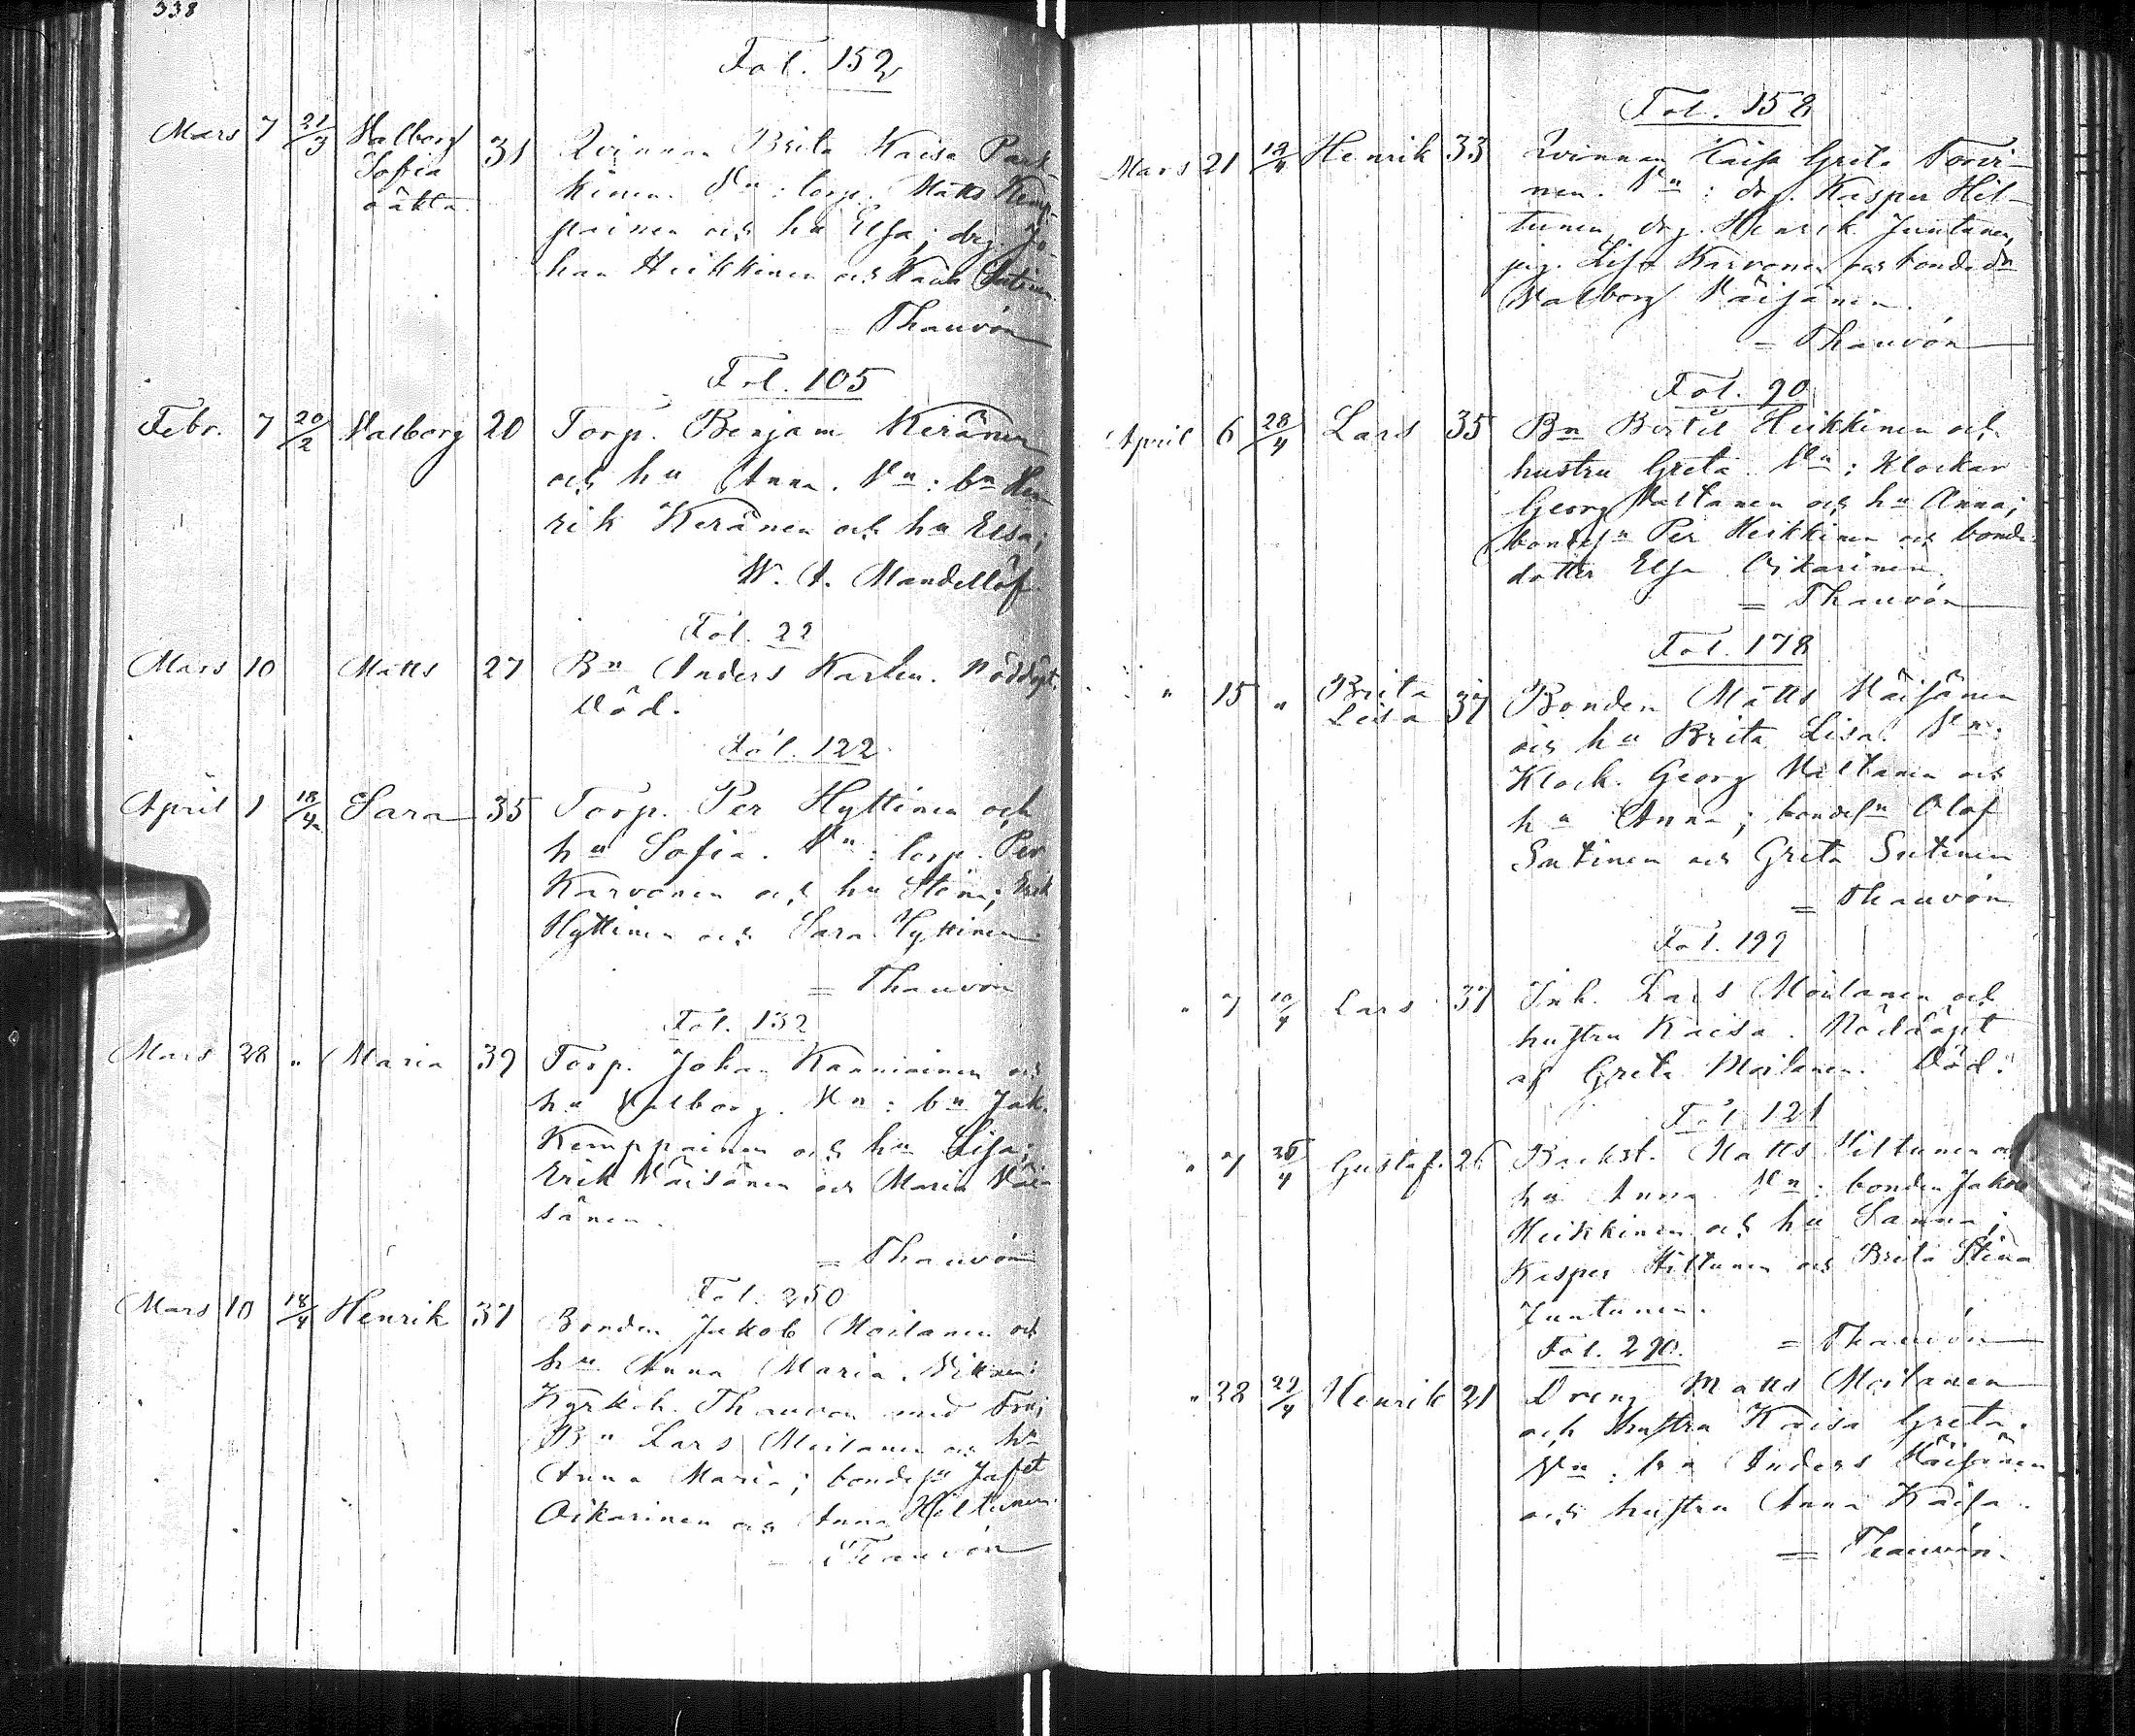 338
Fol. 152
Mars 7 21/3 Valborg 31 Qvinnan Brita Kaisa Park-
Sofia kinen. Vn: torp. Matts Kemp-
oäkta. painen och hu Elsa; drg. Jo-
han Heikkinen och Kaisa
= Thauvón
Fol. 105
Febr. 7 20/2 Valborg 20 Torp. Benjam Keränen
och hu Anna. Vn: bn Hen
rik Keränen och hu Elsa;
W. A. Mandellöf.
Fol. 22
Mars 10 Matts 27 Bn Anders Karhu. Nöddöpt.
Död.
Fol. 122
April 1 18/4 Sara 35 Torp. Per Hyttinen och
hu Sofia. Vn: torp. Per
Karvonen och hu Stina; Erik
Hyttinen och Sara Hyttinen.
= Thauvón
Fol. 132
Mars 28 " Maria 39 Torp. Johan Kanniainen och
hu Valborg. Vn: bn Jak.
Kemppainen och hu Lisa;
Erik Väisänen och Maria Väi
sänen.
= Thauvón
Fol. 250
Mars 10 18/4 Henrik 37 Bonden Jakob Moilanen och
hu Anna Maria. Vittnen:
Kyrkoh. Thauvon med Fru;
Bn Lars Moilanen och hu
Anna Maria; bondesn Jafet
Oikarinen och Anna Hiltunen.
= Thauvón
Fol. 158
Mars 21 12/4 Henrik 33 Qvinnan Kaisa Greta Tervi-
nen. Vn: drg. Kasper Hil-
tunen, drg. Henrik Juntunen,
pig. Lisa Karvonen och bondedr
Valborg Väisänen.
= Thauvón
Fol. 90
April 6 28/4 Lars 35 Bn Bertil Heikkinen och
hustru Greta. Vn: Klockar
Georg Valtanen och hu Anna;
bondesn Per Heikkinen och bonde-
dotter Elsa Oikarinen.
= Thauvón
Fol. 178
" 15 " Brita 37 Bonden Matts Väisänen
Lisa och hu Brita Lisa. Vn:
Klock. Georg Valtanen och
hu Anna; bondesn Olof
Sutinen och Greta Sutinen
= Thauvón
Fol. 199
" 7 10/4 Lars 37 Inh. Lars Moilanen och
hustru Kaisa. Nöddöpt
af Greta Moilanen. Död.
Fol. 121
" 7 26/4 Gustaf. 26 Backst. Matts Hiltunen och
hu Anna. Vn: bonden Jakob
Heikkinen och hu Sanna;
Kasper Hiltunen och Brita Stina
Juntunen.
Fol. 290. = Thauvón
" 28 29/4 Henrik 21 Dreng Matts Moilanen
och hustru Kaisa Greta.
Vn: bn Anders Väisänen
och hustru Anna Kaisa.
= Thauvón.